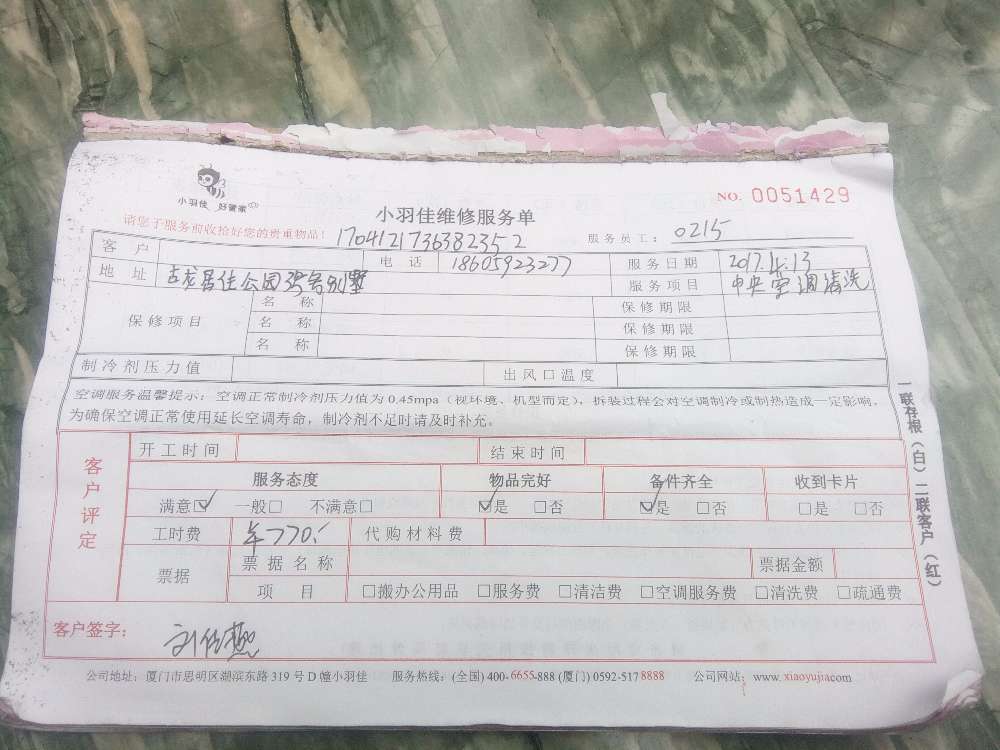 小羽佳 好管家
NO. 0051429
小羽佳维修服务单
请您于服务前收拾好您的贵重物品！
1704121736382352
服务员工： 0215
客 户 电 话 18605923277 服务日期 2017.4.13
地 址 古龙居住公园 别墅 服务项目 中央空调清洗
保修项目 名 称 保修期限
名 称 保修期限
名 称 保修期限
制冷剂压力值 出风口温度
空调服务温馨提示：空调正常制冷剂压力值为 0.45mpa（视环境、机型而定），拆装过程会对空调制冷或制热造成一定影响，
为确保空调正常使用延长空调寿命，制冷剂不足时请及时补充。
客户评定
开工时间 结束时间
服务态度 物品完好 备件齐全 收到卡片
满意☑ 一般□ 不满意□ ☑是 □否 ☑是 □否 □是 □否
工时费 ¥770. 代购材料费
票据 票据名称 票据金额
项 目 □搬办公用品 □服务费 □清洁费 □空调服务费 □清洗费 □疏通费
客户签字：
公司地址：厦门市思明区湖滨东路 319 号 D 幢小羽佳 服务热线：(全国) 400-6655-888 (厦门) 0592-517 8888 公司网站：www. xiaoyujia.com
一联存根（白）二联客户（红）